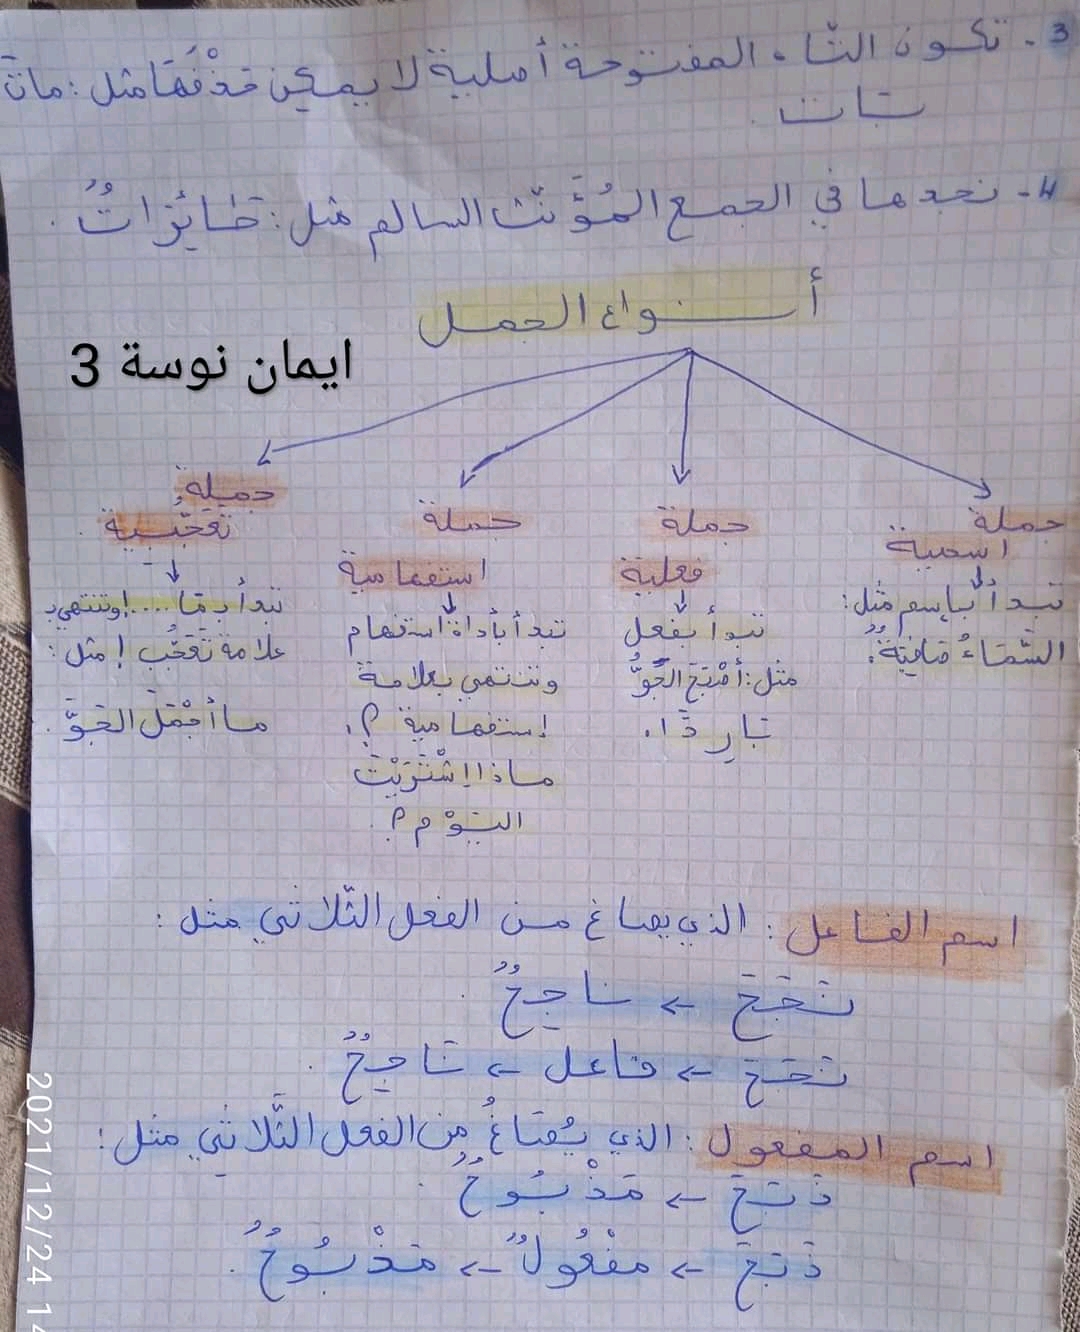 3- تكون التّاء المفتوحة أصلية لا يمكن حَذْفُهَا مثل: مات
بات
4- نجدها في الجمع المُؤَنّث السالم مثل: طائِرَاتٌ.
أنواع الجمل
ايمان نوسة 3
جملة
اسمية
تبدأ بإسم مثل:
السَّمَاءُ صَافِيَةٌ.
جملة
فعلية
تبدأ بفعل
مثل: أَصْبَحَ الجَوُّ
بَارِدًا.
جملة
استفهامية
تبدأ بأداة استفهام
وتنتهي بعلامة
إستفهامية ؟.
ماذا اِشْتَرَيْتَ
اليَوْم ؟.
جملة
تَعَجُّبية.
تبدأ بِمَا .... ! وتنتهي بـ
علامة تَعَجُّب ! مثل:
ما أَجْمَلَ الجَوَّ.
اسم الفاعل: الذي يصاغ من الفعل الثّلاثي مثل:
نَجَحَ ← ناجِحٌ.
نَجَحَ ← فاعل ← نَاجِحٌ.
اسم المفعول: الذي يُصَاغُ مِن الفعل الثَّلاثِي مثل:
ذَبَحَ ← مَذْبُوحٌ.
ذَبَحَ ← مَفْعُولٌ ← مَذْبُوحٌ.
2021/12/24 14